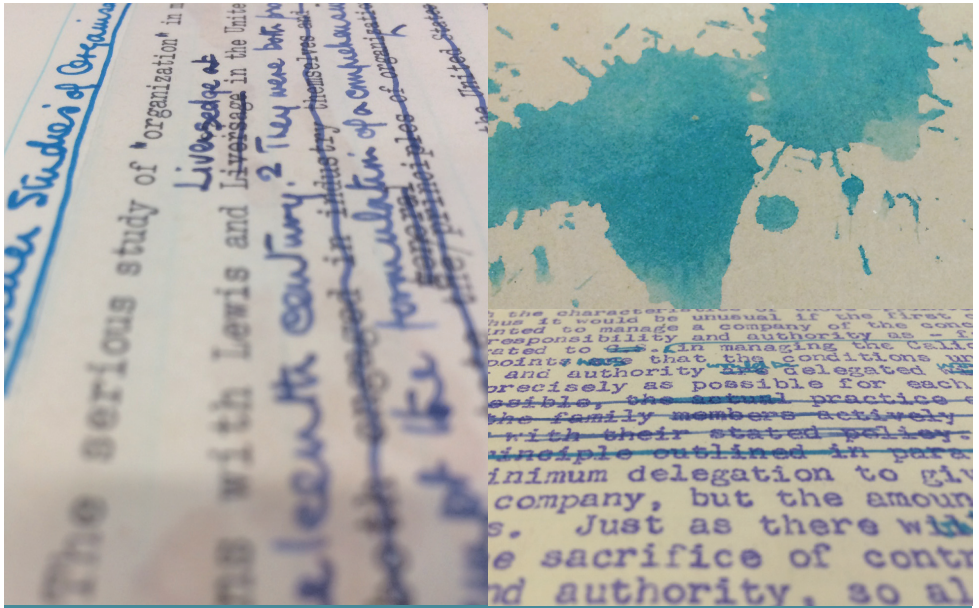 Studies of Organisa
The serious study of "organization" in m
Liversedge at
ns with Lewis and Liversage in the Unite
century. 2 They were both bo
both engaged in industry themselves and
at the formulation of a comprehensiv
general principles of organization
the principles
the United State
the characteris
hus it would be unusual if the first
nted to manage a company of the conc
responsibility and authority as a fo
rated to in managing the
points were that the conditions un
and authority are delegated
precisely as possible for each
ssible, the actual practice o
the family members actively
with their stated policy.
inciple outlined in para
inimum delegation to giv
company, but the amoun
s. Just as there will
e sacrifice of contr
nd authority, so al